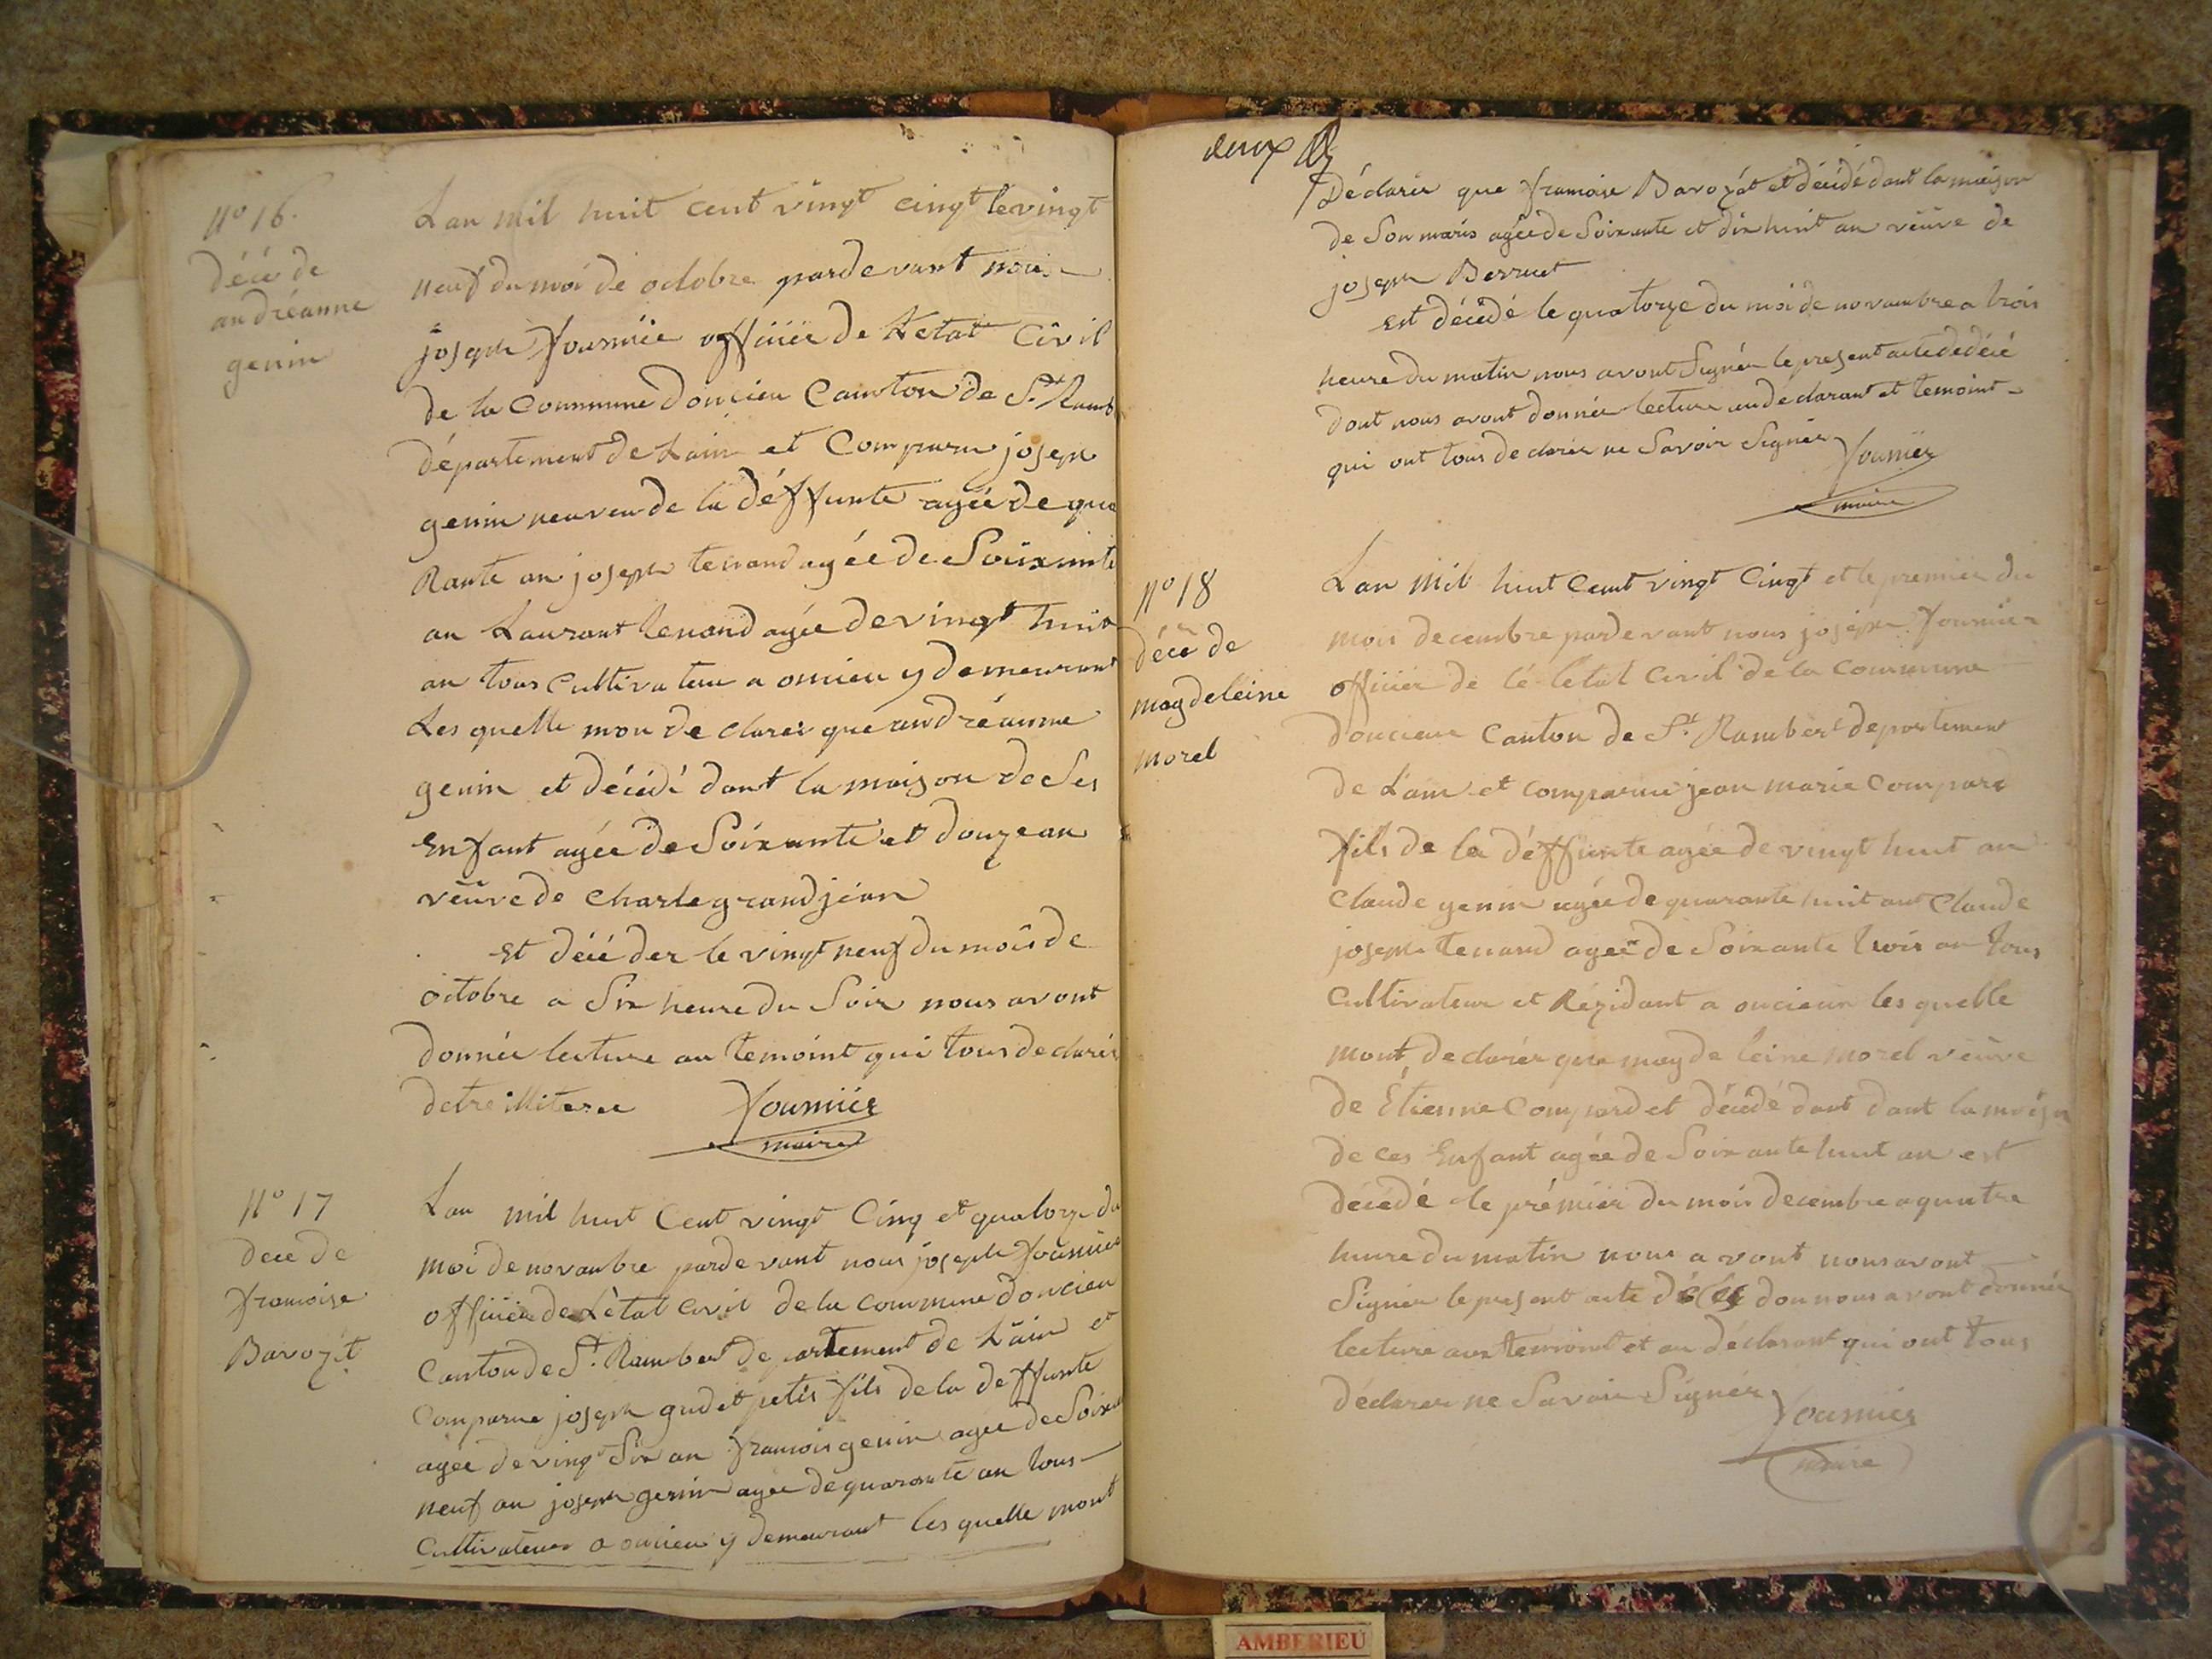 N° 16.
décé de
andréanne
genin
Lan mil huit cent vingt cingt le vingt
neuf du moi de octobre pardevant nous
joseph fournier officier de Letat Civil
de la Commune doncieu Canton de St Ramb
département de Lain et Comparu joseph
genin neuveu de la déffunte agée de qua
Rante an joseph tenand agée de Soixante
an Laurant tenand agée de vingt huit
an tous cultivateur a oncieu y demeurant
Les quelle mon declarer que andréanne
genin et décédé dant la maison de Ses
Enfant agée de Soixante et douze an
veuve de charle grandjean
Est décéder le vingt neuf du mois de
octobre a Six heure du Soir nous avont
donnée lecture au temoint qui tous declarer
detre illiteree fournier
maire
N° 17
dece de
francoise
Barozat
Lan mil huit Cent vingt Cinq et quatorze du
moi de novanbre pardevant nous joseph fournier
officier de Létat civil de la commune doncieu
Canton de St. Rambert departement de Lain et
Comparue joseph gudet petis fils de la deffunte
agée de vingt Six an francois genin agée de Soixante
neuf an joseph genin agée de quarante an tous
Cultivateur a oncieu y demeurant les quelle mont
deux
Déclarer que francoise Barozat et décédé dant la maison
de Son maris agée de Soixante et dix huit an veuve de
joseph Berruet
Est décédé le quatorze du moi de novambre a trois
heure du matin nous avont Signée le present acte de décé
dont nous avont donnée lecture au declarant et temoint
qui ont tous declarer ne Savoir Signer fournier
maire
N° 18
déce de
magdeleine
morel
Lan Mil huit Cent vingt Cingt et le premier du
mois decembre pardevant nous joseph fournier
officier de lé letat Civil de la Commune
doncieu Canton de St. Rambert departement
de Lain et comparue jean marie Compard
fils de la déffunte agée de vingt huit an
Claude genin agée de quarante huit ant Claude
joseph tenand agée de Soixante trois an tous
Cultivateur et Rézidant a oncieu les quelle
mont declarer que magdeleine morel veuve
de Étienne Compard et décédé dant dant la maison
de ces Enfant agée de Soixante huit an est
décédé le prémier du mois decembre a quatre
heure du matin nous avont nous avont
Signer le present acte décé don nous avont donnée
lecture aux temoint et au déclarant qui ont tous
déclarer ne Savoir Signer fournier
maire
AMBERIEU